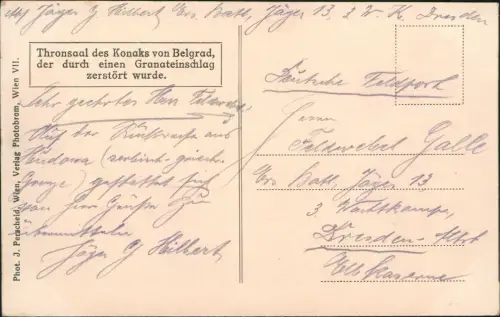 Jäger G Hilbert Ers. Batl. Jäger 13, 2 W. K. Dresden
Thronsaal des Konaks von Belgrad,
der durch einen Granateinschlag
zerstört wurde.
Phot. J. Perscheid, Wien, Verlag Photobrom, Wien VII.
Sehr geehrter Herr Feldwebel
Auf der Rückreise aus
(serbisch-griech.
Grenze) gestattet sich
Grüße zu
übermitteln
Jäger G Hilbert
Deutsche Feldpost
Herrn
Feldwebel Galle
Ers Batl. Jäger 13
3 Wachtkomp.
Dresden-Albst
Elbkaserne